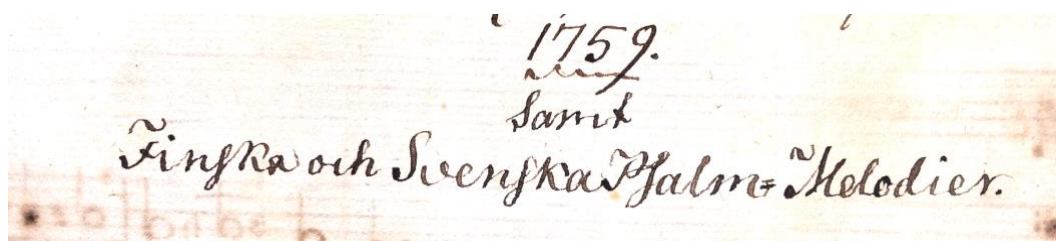 1759.
Samt
Finska och Svenska Psalm= Melodier.